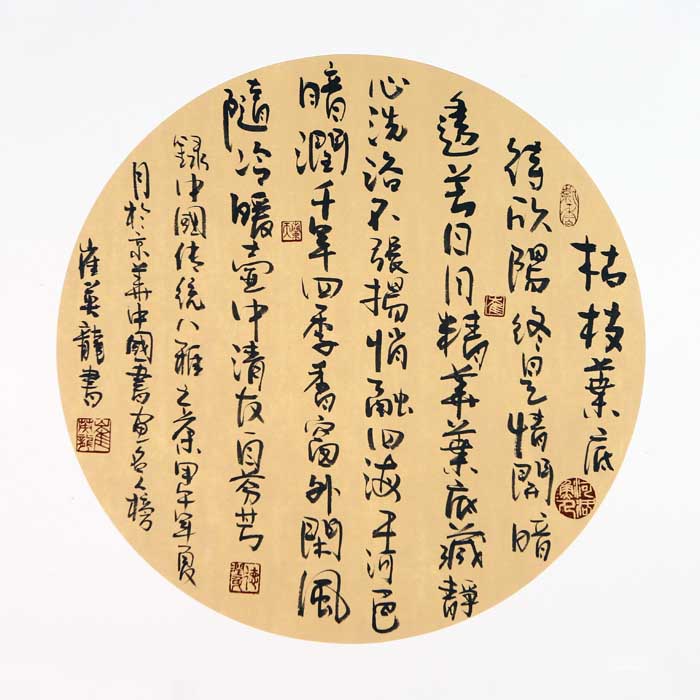 枯枝葉底
待欣陽終是情開暗
透芳日月精華葉底藏靜
心洗浴不張揚悄融四海千河色
暗潤千年四季香窗外閑風
隨冷暖壺中清友自芬芳
錄中國傳統八雅之茶甲午年夏
月於京華中國書畫名人榜
崔英龍書